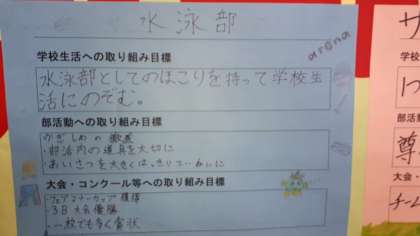 水泳部
arena
学校生活への取り組み目標
水泳部としてのほこりを持って学校生
活にのぞむ。
部活動への取り組み目標
・かぎしめの徹底
・部活内の道具を大切に
・あいさつを大きくはっきりていねいに
大会・コンクール等への取り組み目標
・フェアマナーカップ獲得
・3B大会優勝
・一枚でも多く賞状
サ
部
尊
大会
チーム